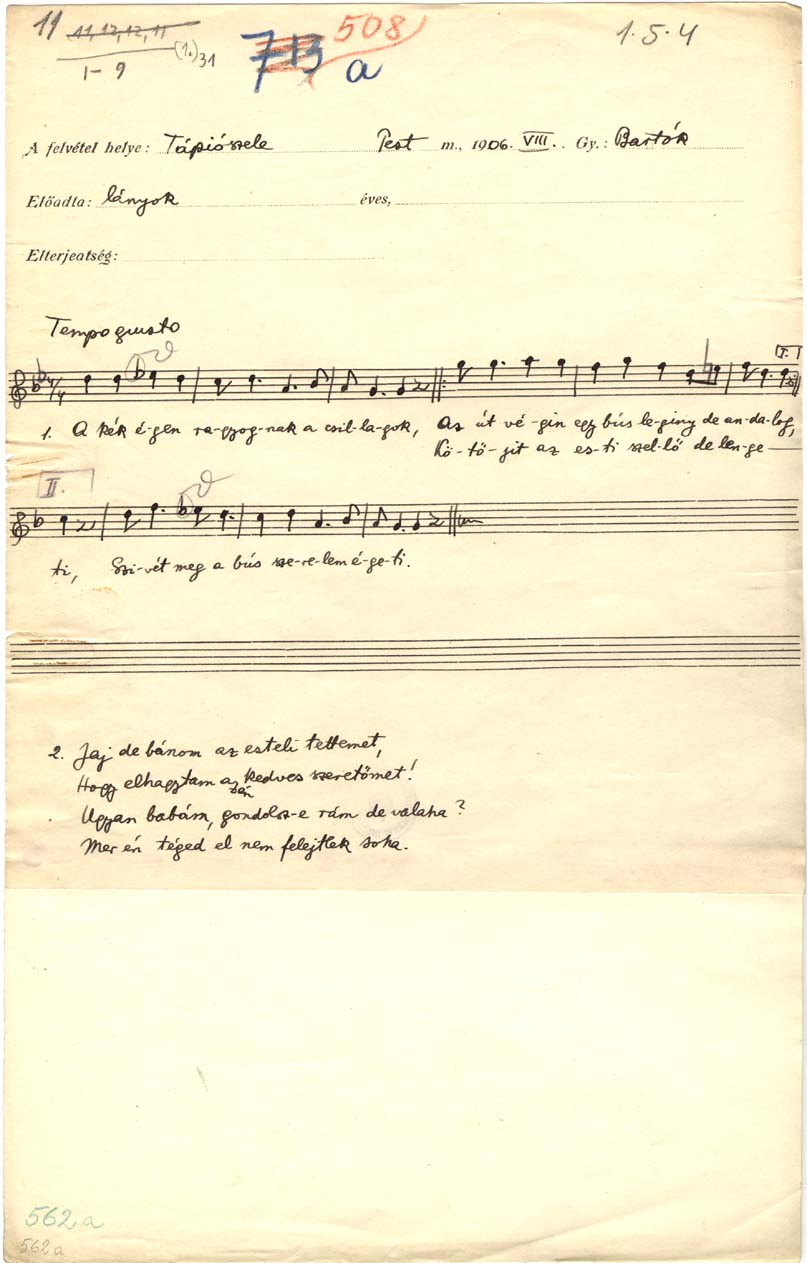 11 11, 12, 12, 11 508 1.5.4
1-9 (1.) 31 713 a
A felvétel helye: Tápiószele Pest m., 1906. VIII. Gy.: Bartók
Előadta: lányok éves,
Elterjedtség:
Tempo giusto
I.
1. A kék é-gen ra-gyog-nak a csil-la-gok, Az út vé-gin egy bús le-giny de an-da-log,
Kö-tő-jit az es-ti szel-lő de len-ge
II.
ti, Szi-vét meg a bús sze-re-lem é-ge-ti.
2. Jaj de bánom az esteli tettemet,
Hogy elhagytam az kedves szeretőmet!
Ugyan babám, gondolsz-e rám de valaha?
Mer én téged el nem felejtlek soha.
562a
562a